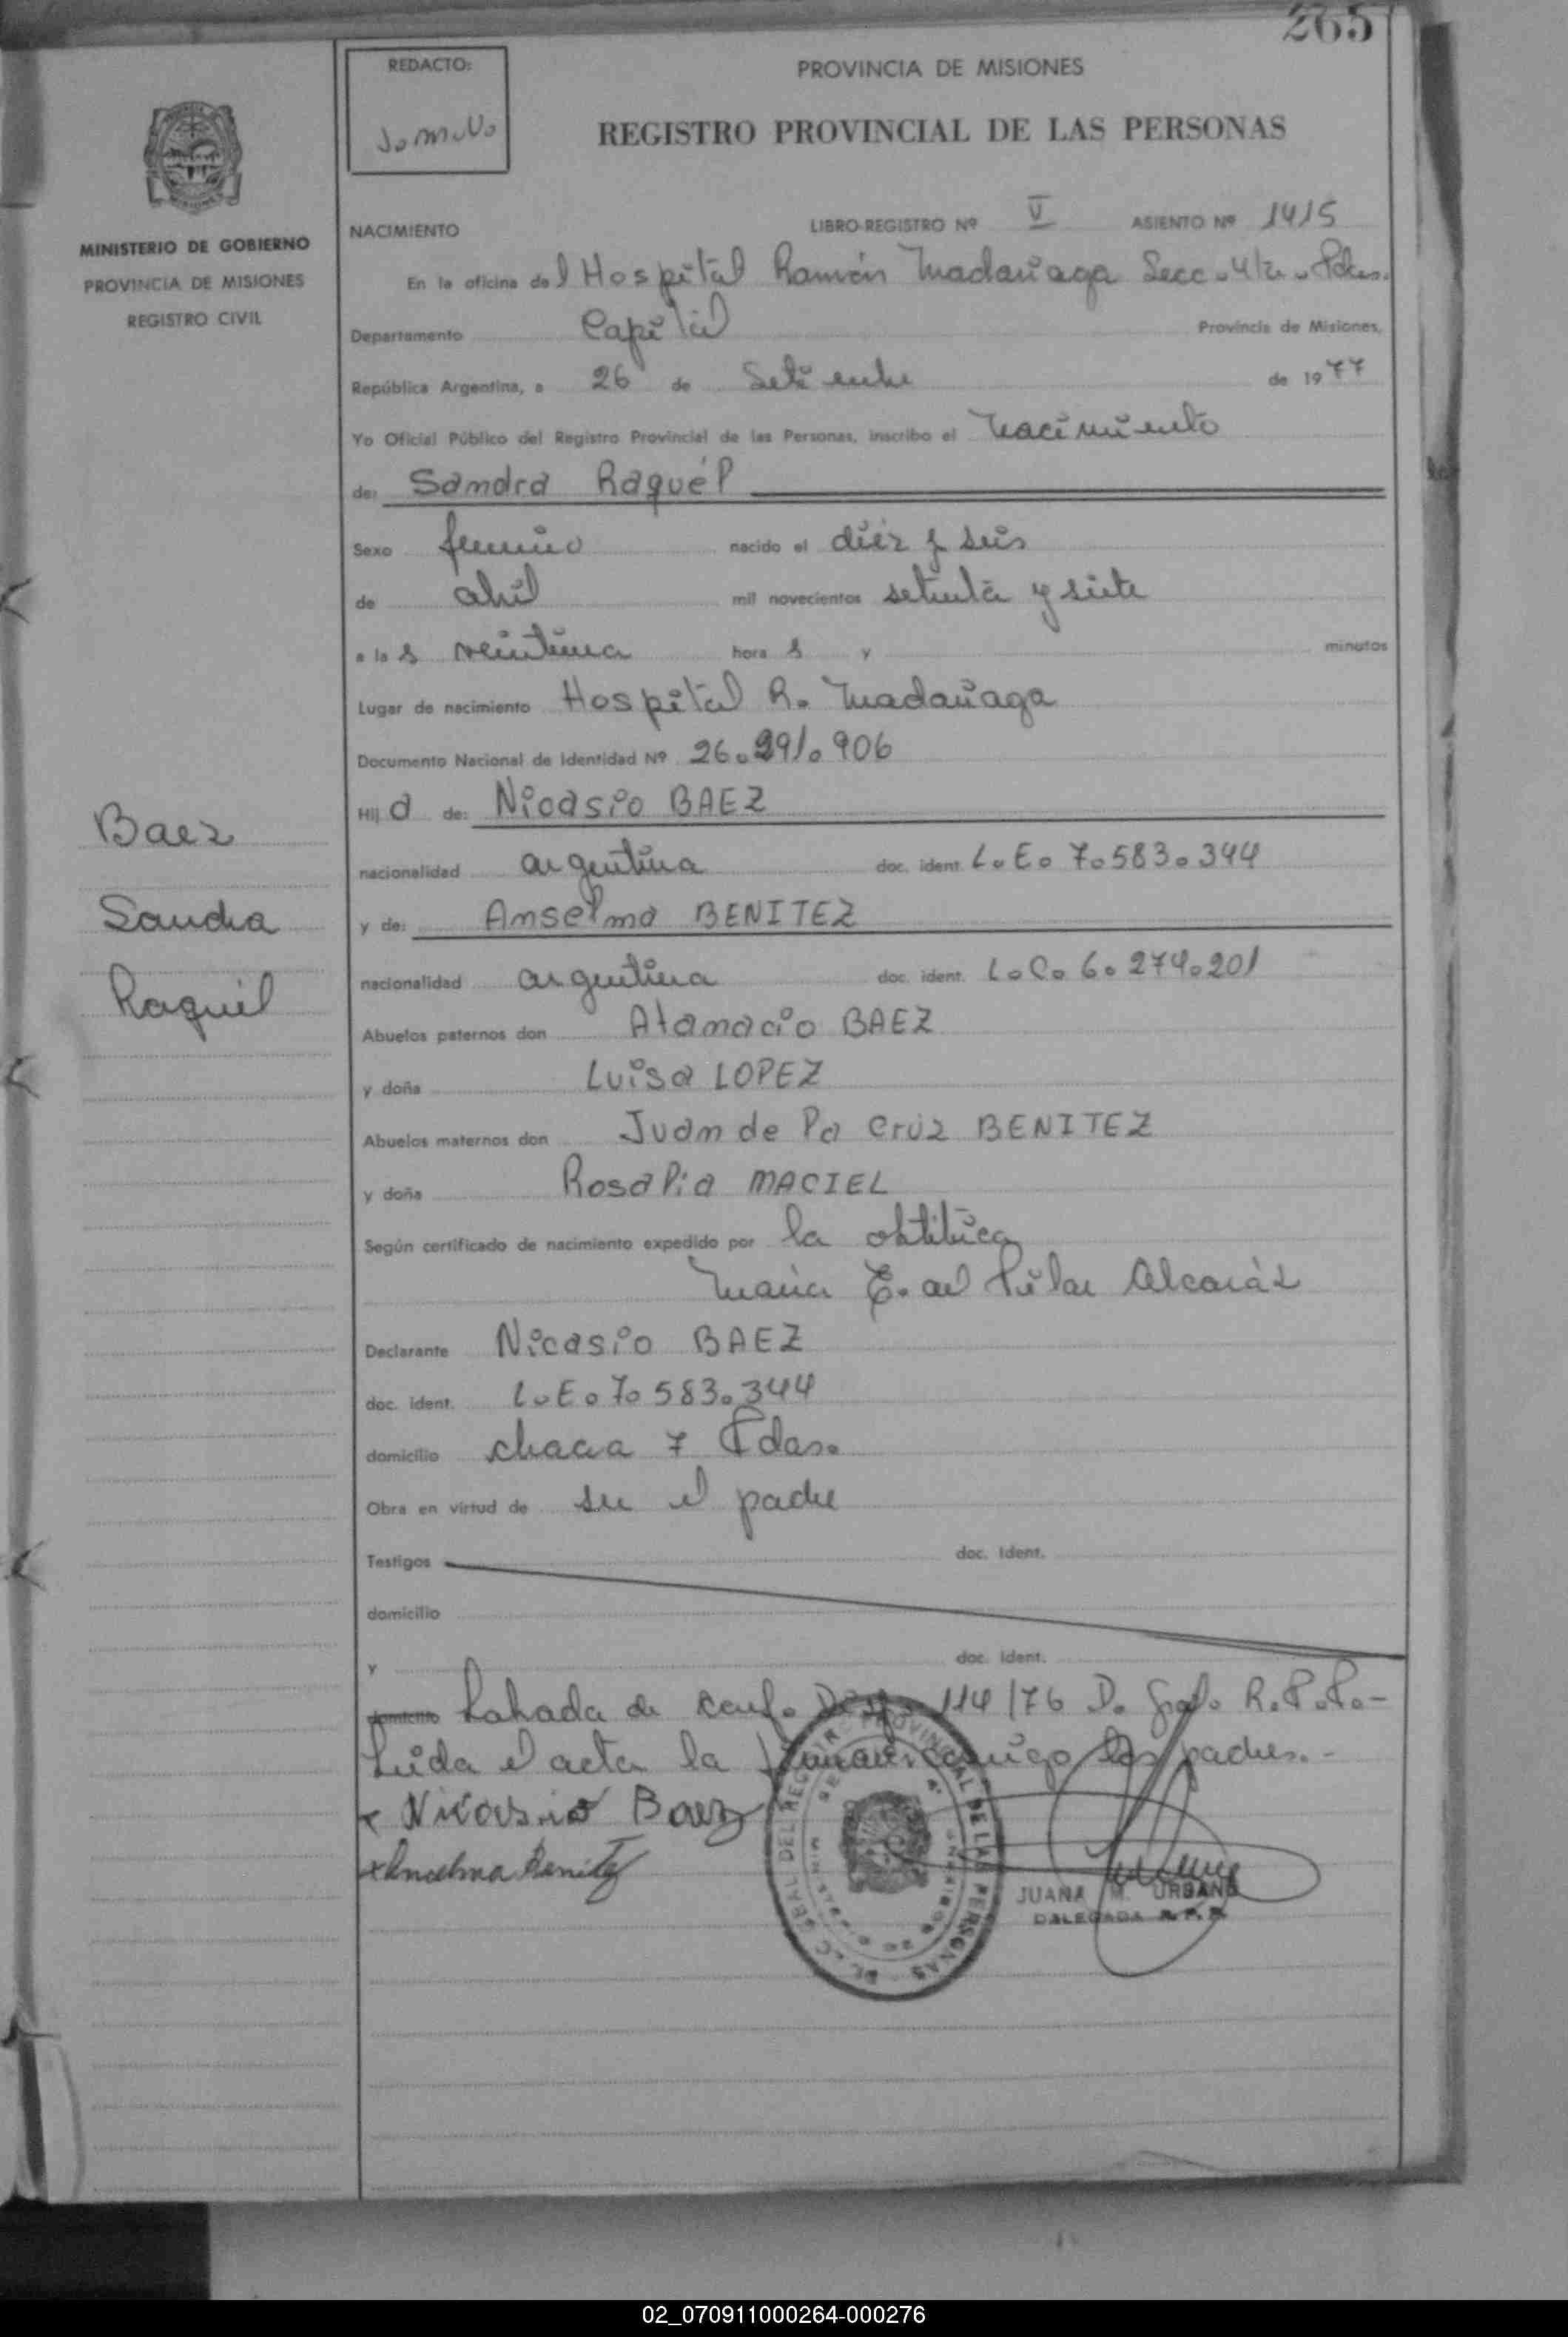 265
REDACTO:
PROVINCIA DE MISIONES
REGISTRO PROVINCIAL DE LAS PERSONAS
MINISTERIO DE GOBIERNO
PROVINCIA DE MISIONES
REGISTRO CIVIL
NACIMIENTO LIBRO-REGISTRO Nº V ASIENTO Nº 1415
En la oficina del Hospital Ramón Madariaga Secc. 4ta. Pdas.
Departamento Capital Provincia de Misiones,
República Argentina, a 26 de Setiembre de 1977
Yo Oficial Público del Registro Provincial de las Personas, inscribo el Nacimiento
de: Sandra Raquél
Sexo femenino nacido el diez y seis
de abril mil novecientos setenta y siete
a la s veintiuna hora s y minutos
Lugar de nacimiento Hospital R. Madariaga
Documento Nacional de Identidad Nº 26.291.906
Hij a de: Nicasio BAEZ
nacionalidad argentina doc. ident. L.E. 7.583.344
y de: Anselma BENITEZ
nacionalidad argentina doc. ident. L.C. 6.274.201
Abuelos paternos don Atanacio BAEZ
y doña Luisa LOPEZ
Abuelos maternos don Juan de la Cruz BENITEZ
y doña Rosalia MACIEL
Según certificado de nacimiento expedido por la obstétrica
María E. del Pilar Alcaráz
Declarante Nicasio BAEZ
doc. ident. L.E. 7.583.344
domicilio chacra 7 Pdas.
Obra en virtud de ser el padre
Testigos doc. ident.
domicilio
y doc. ident.
domicilio Labrada de conf. Disp. 114/76 D. Gral. R.P.P.-
Leida el acta la firman conmigo los padres.-
x Nicasio Baez
x Anselma Benitez
JUANA M. URBANO
DELEGADA R.P.P.
Baez
Sandra
Raquel
02_070911000264-000276